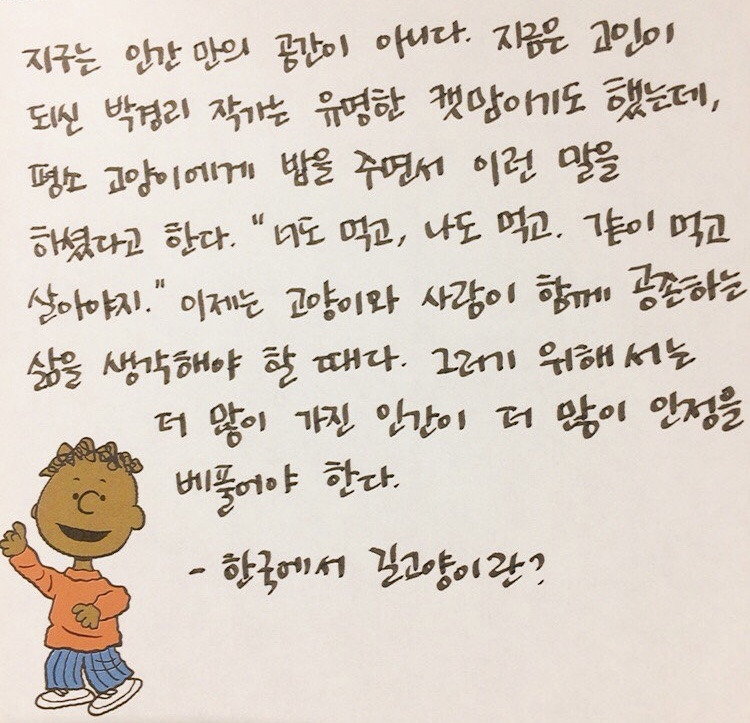 지구는 인간 만의 공간이 아니다. 지금은 고인이
되신 박경리 작가는 유명한 캣맘이기도 했는데,
평소 고양이에게 밥을 주면서 이런 말을
하셨다고 한다. "너도 먹고, 나도 먹고. 같이 먹고
살아야지." 이제는 고양이와 사람이 함께 공존하는
삶을 생각해야 할 때다. 그러기 위해서는
더 많이 가진 인간이 더 많이 인정을
베풀어야 한다.
- 한국에서 길고양이란?